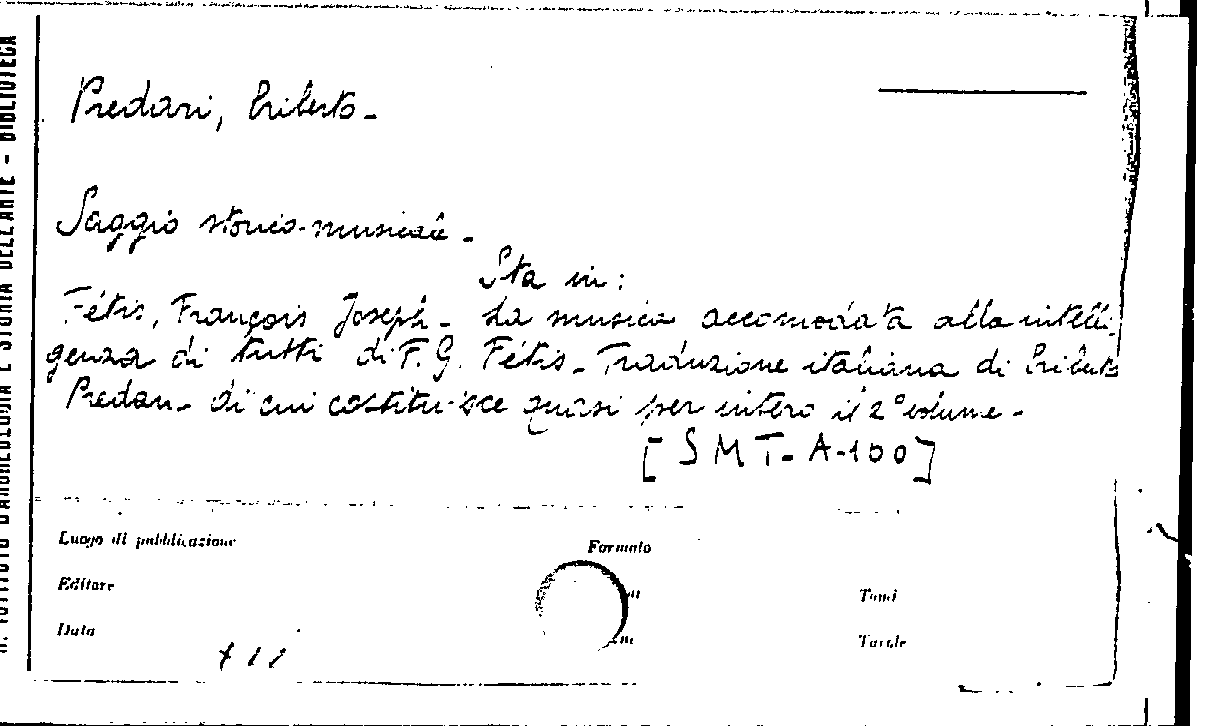 Predari, Eriberto -
Saggio storico-musicale -
Sta in:
Fétis, François Joseph - La musica accomodata alla intelli-
genza di tutti di F. G. Fétis - Traduzione italiana di Eriberto
Predari - di cui costituisce quasi per intero il 2° volume -
[SMT-A-100]
Luogo di pubblicazione
Formato
Editore
Tomi
Data
Tavole
R. ISTITUTO D'ARCHEOLOGIA E STORIA DELL'ARTE - BIBLIOTECA